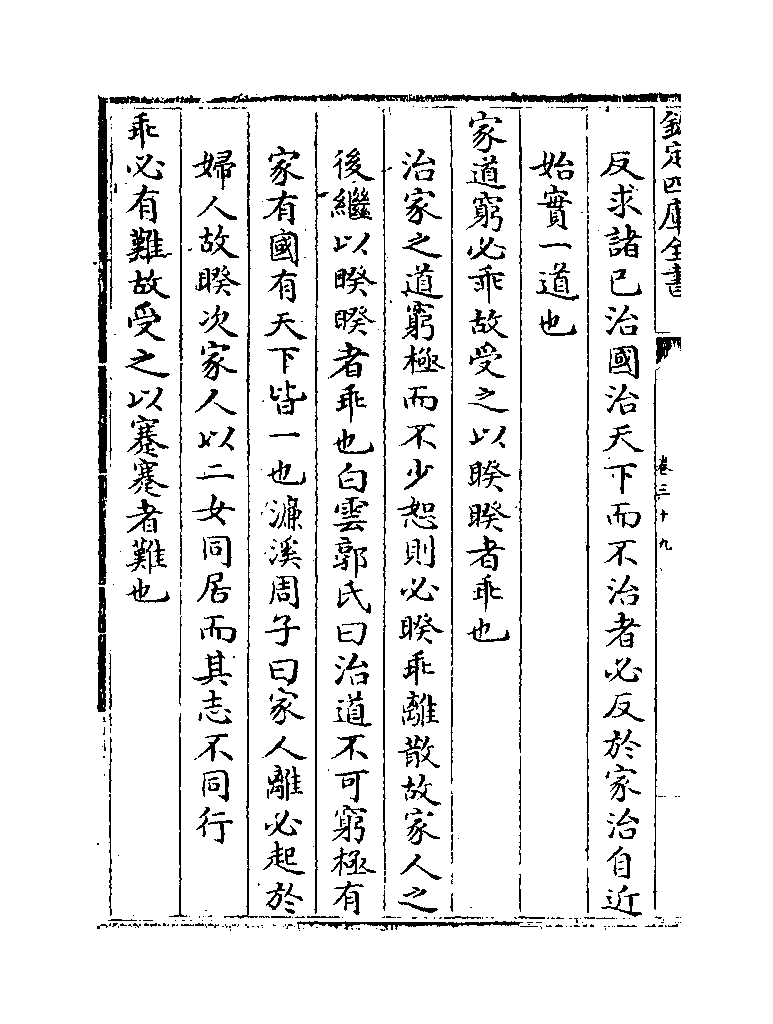 欽定四庫全書
卷三十九
反求諸已治國治天下而不治者必反於家治自近
始實一道也
家道窮必乖故受之以暌暌者乖也
治家之道窮極而不少恕則必暌乖離散故家人之
後繼以暌暌者乖也白雲郭氏曰治道不可窮極有
家有國有天下皆一也濂溪周子曰家人離必起於
婦人故暌次家人以二女同居而其志不同行
乖必有難故受之以蹇蹇者難也